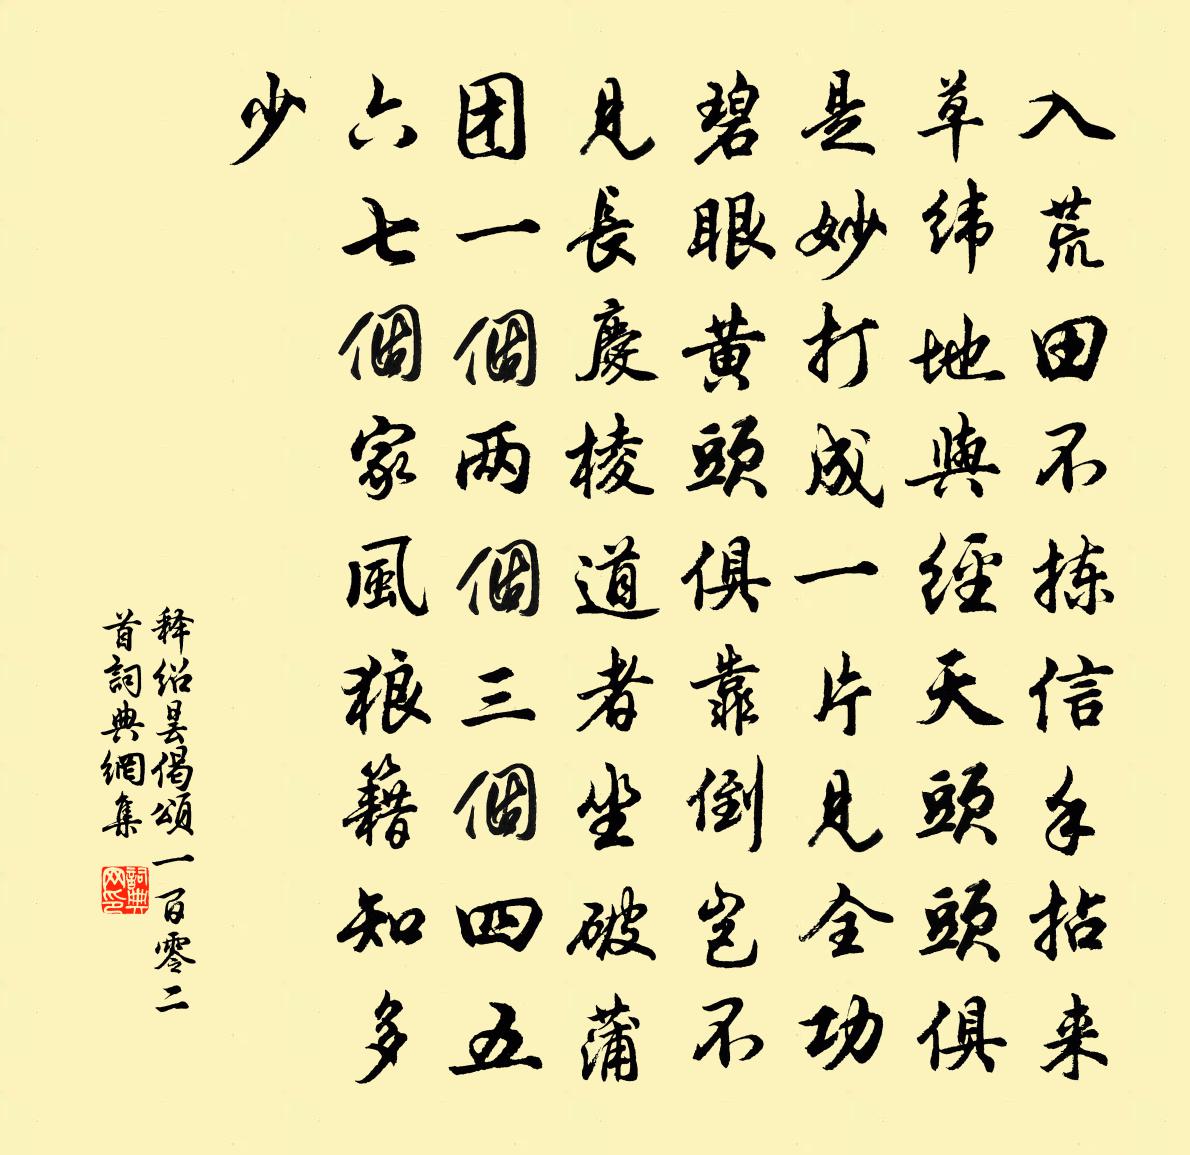 入荒田不拣信手拈来
草纬地與經天頭頭俱
是妙打成一片見全功
碧眼黃頭俱靠倒岂不
見長慶棱道者坐破蒲
团一個两個三個四五
六七個家風狼籍知多
少
释绍昙偈頌一百零二
首詞典網集
詞典网印